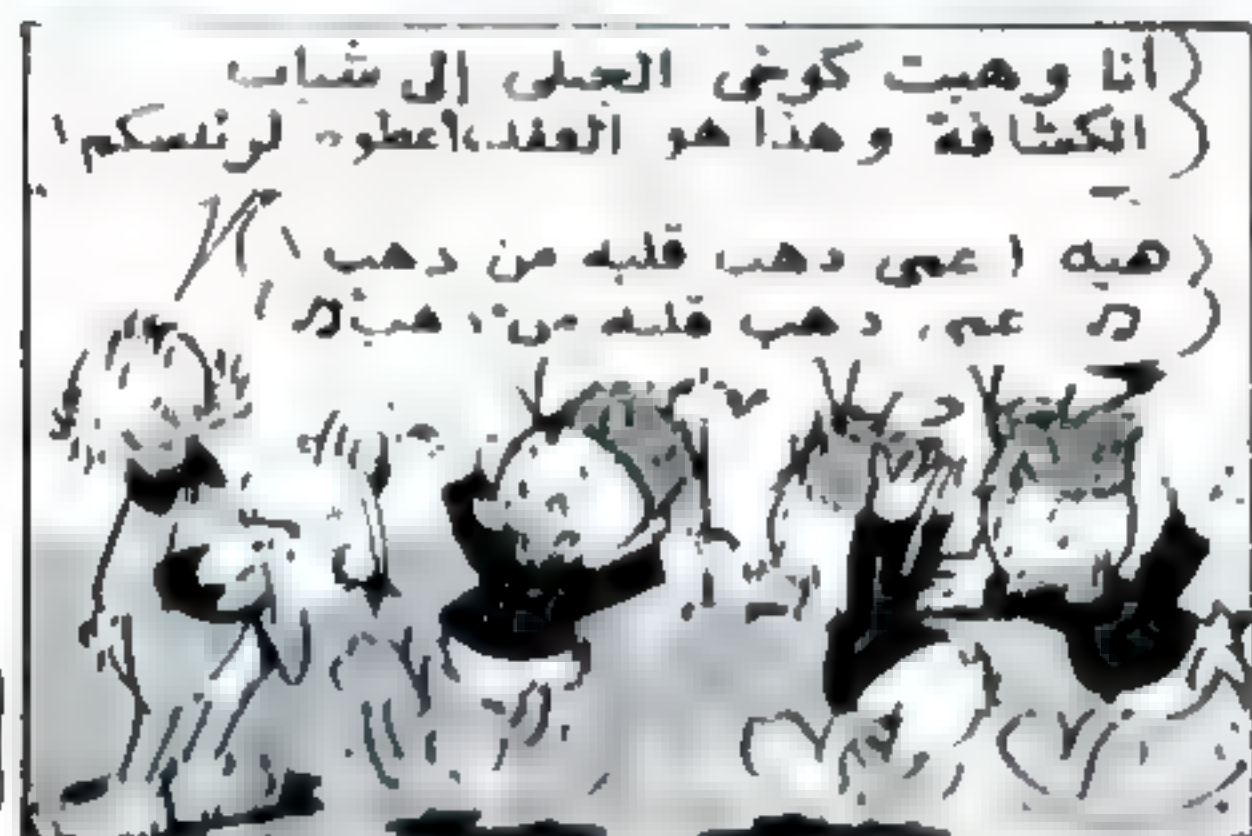 أنا وهبت كوخى الجبلى إلى شباب
الكشافة وهذا هو العقد، أعطوه لرئيسكم!
هيه! عمى دهب قلبه من دهب!
عمى دهب قلبه من دهب!